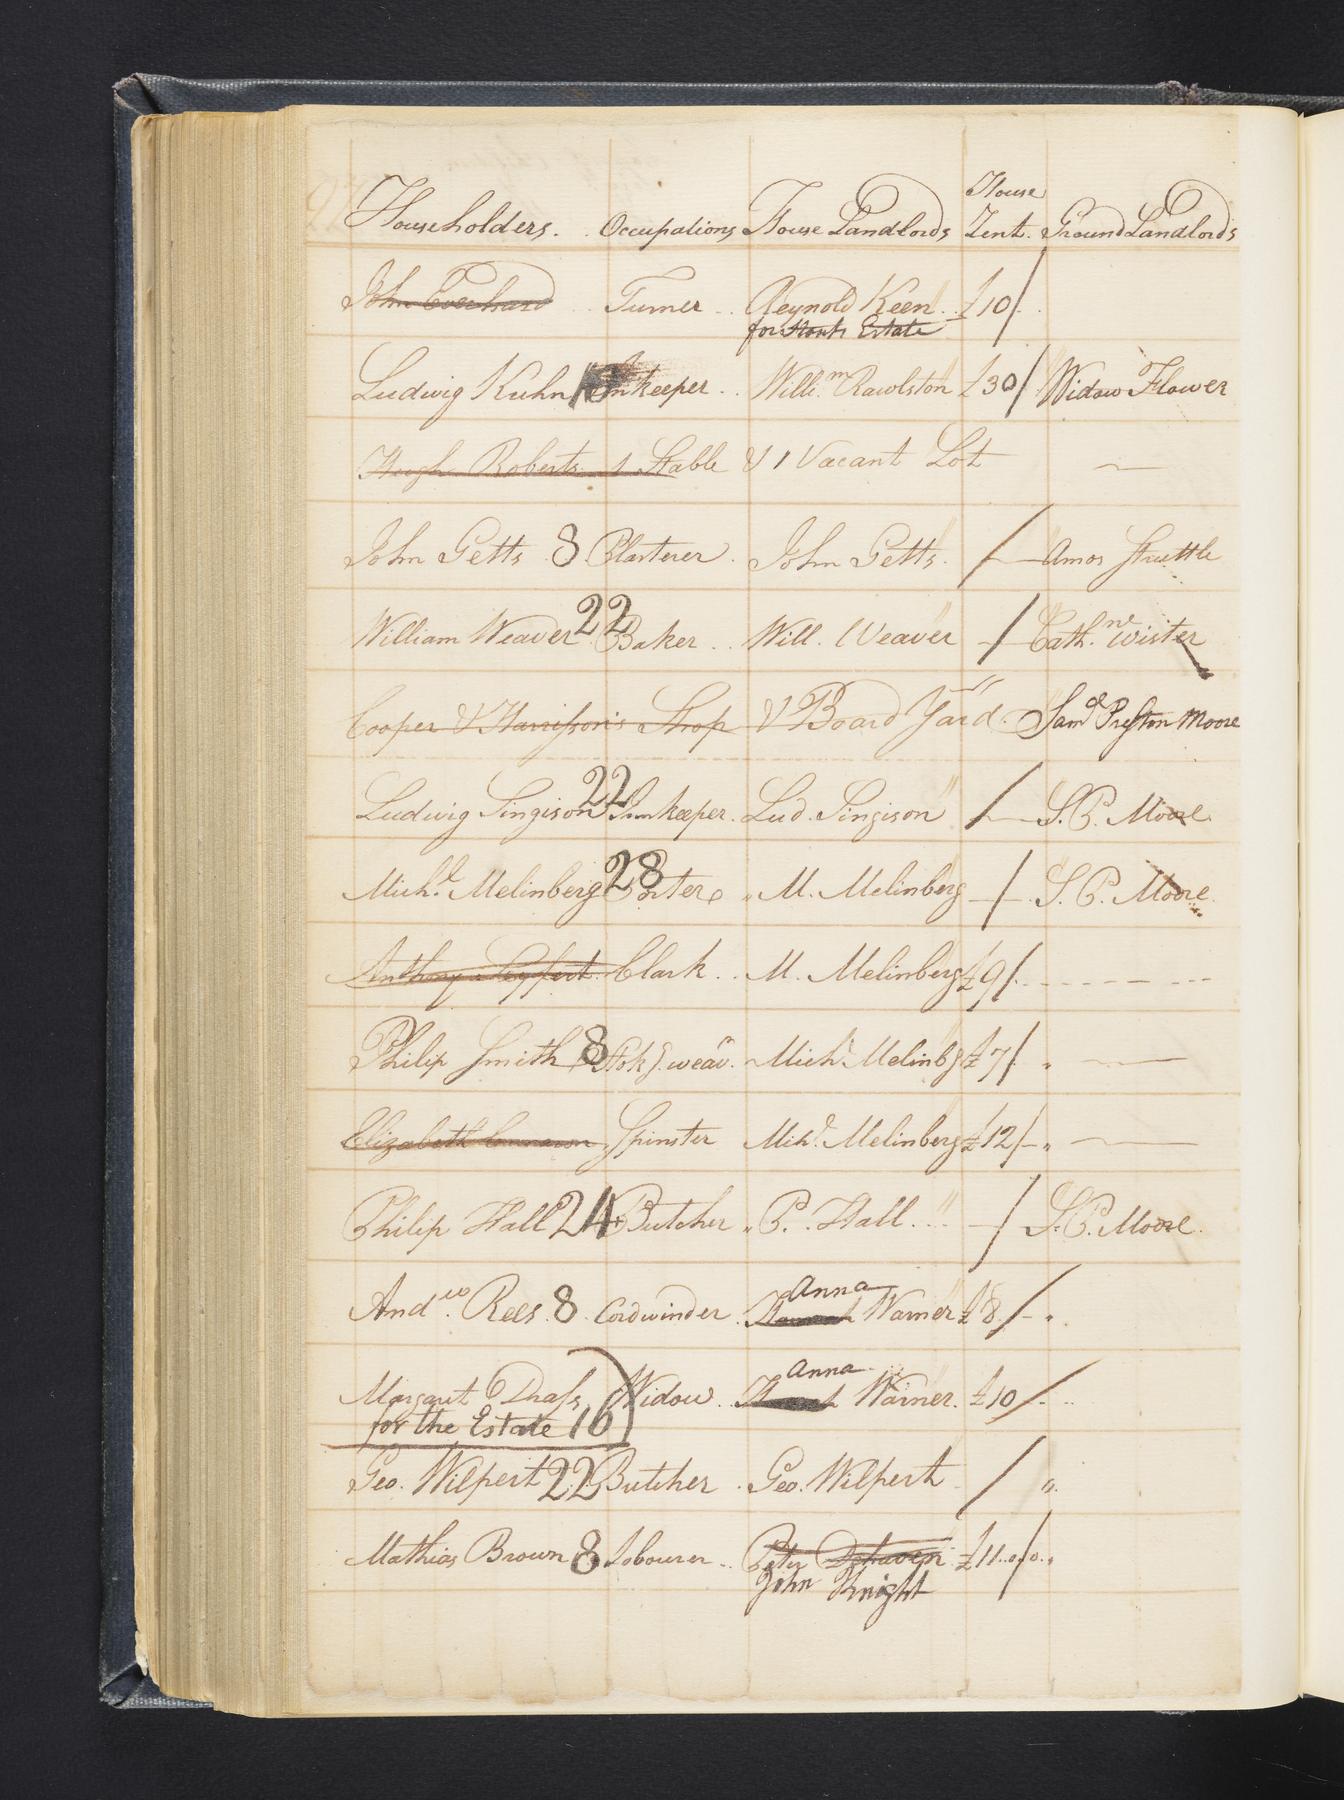 Householders. Occupations House Landlords House Rent. Ground Landlords
John Everhard Turner Reynold Keen £10/
for Estate
Ludwig Kuhn Inkeeper Willi.m Rawlston £30/ Widow Flower
Hugh Roberts 1 Stable & 1 Vacant Lot
John Getts 8 Plarterer John Getts / Amos Struttle
William Weaver 22 Baker Will. Weaver / Cath.ne Wister
Cooper & Harrisson's Shop & Board Yard Saml Preston Moore
Ludwig Singison 22 Innkeeper Lud. Singison / S. P. Moore
Mich.l Melinberg 28 Porter M. Melinberg / S. P. Moore
Anthony Clark M. Melinberg £9/
Philip Smith 8 Stok.g weav.r Mich.l Melinbg £7/
Elizabeth Spinster Mihl. Melinberg £12/
Philip Hall 24 Butcher P. Hall / S. P. Moore
Andrw. Rees 8 Cordwinder Anna Warner £8/
Margaret Drass Widow Anna Warner £10/
for the Estate 16
Geo. Wilpert 22 Butcher Geo. Wilpert / "
Mathias Brown 8 Labourer Peter Dehaven £11..0..0
John Knight